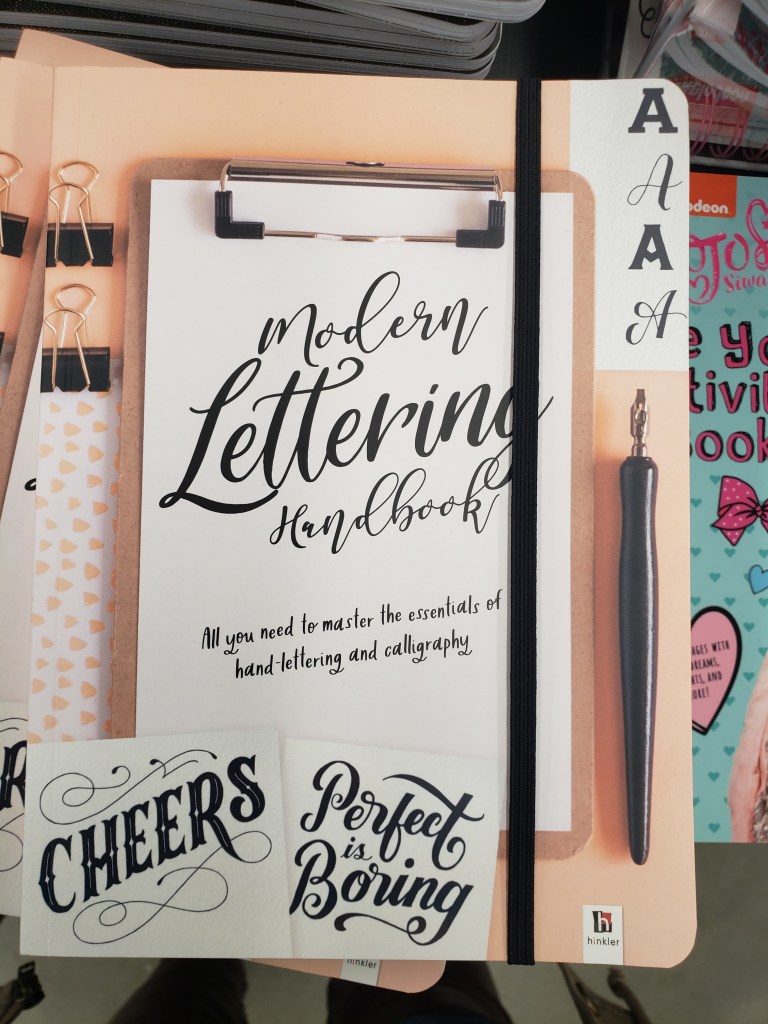 A
A
A
A
Modern
Lettering
Handbook
All you need to master the essentials of
hand-lettering and calligraphy
CHEERS
Perfect
is
Boring
h
hinkler
hinkler
odeon
JOJO
Siwa
AGES WITH